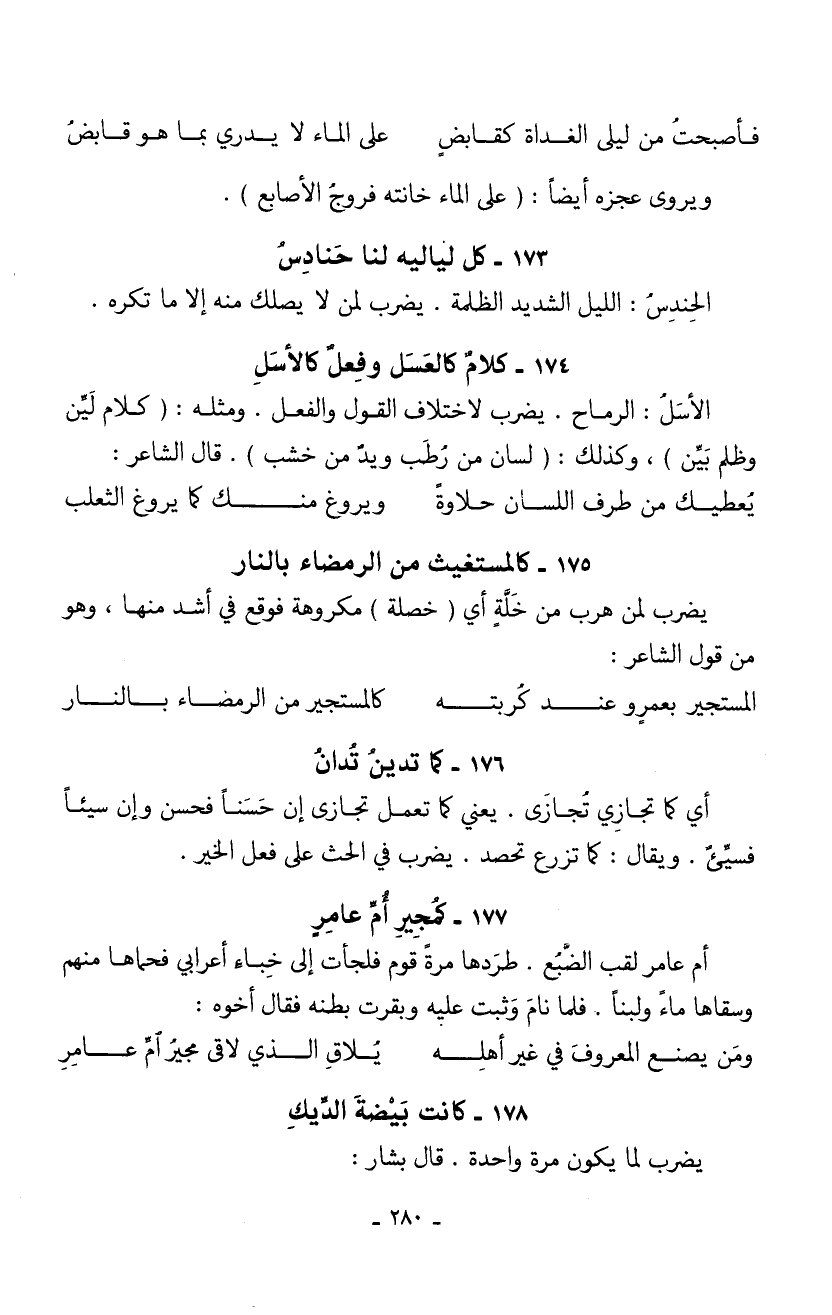 فأصبحتُ من ليلى الغداة كقابضٍ على الماء لا يدري بما هو قابضُ
ويروى عجزه أيضاً : ( على الماء خانته فروجُ الأصابع ) .
١٧٣ - كل لياليه لنا حَنادِسُ
الحِندِسُ : الليل الشديد الظلمة . يضرب لمن لا يصلك منه إلا ما تكره .
١٧٤ - كلامٌ كالعَسَل وفِعلٌ كالأسَلِ
الأسَلُ : الرماح . يضرب لاختلاف القول والفعل . ومثله : ( كلام لَيِّن
وظلم بَيِّن ) ، وكذلك : ( لسان من رُطَب ويدٌ من خشب ) . قال الشاعر :
يُعطيك من طرف اللسان حلاوةً ويروغ منك كما يروغ الثعلب
١٧٥ - كالمستغيث من الرمضاء بالنار
يضرب لمن هرب من خَلَّةٍ أي ( خصلة ) مكروهة فوقع في أشد منها ، وهو
من قول الشاعر :
المستجير بعمرٍو عند كُربته كالمستجير من الرمضاء بالنار
١٧٦ - كما تدينُ تُدانُ
أي كما تجازِي تُجازَى . يعني كما تعمل تجازى إن حَسَناً فحسن وإن سيئاً
فسيِّئٌ . ويقال : كما تزرع تحصد . يضرب في الحث على فعل الخير .
١٧٧ - كمُجِيرِ أُمِّ عامِرٍ
أم عامر لقب الضَّبُع . طرَدها مرةً قوم فلجأت إلى خِباء أعرابي فحماها منهم
وسقاها ماءً ولبناً . فلما نامَ وَثبت عليه وبقرت بطنه فقال أخوه :
ومَن يصنع المعروفَ في غير أهلِه يُلاقِ الذي لاقى مجيرُ آمِّ عامرِ
١٧٨ - كانت بَيْضةَ الدِّيكِ
يضرب لما يكون مرة واحدة . قال بشار :
- ٢٨٠ -